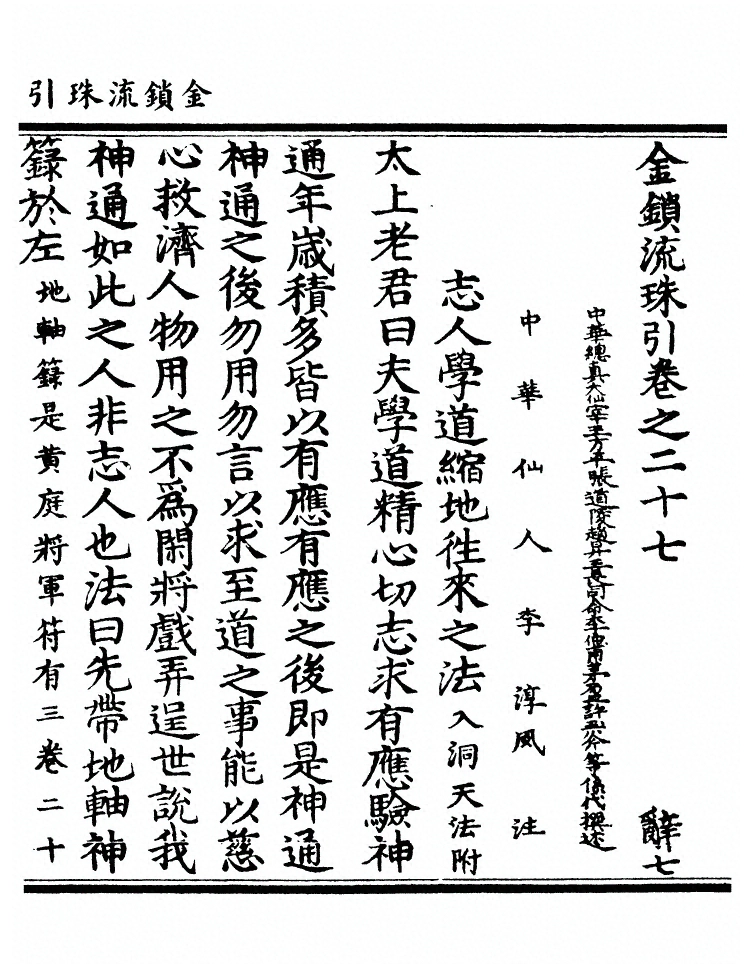 金鎖流珠引
金鎖流珠引卷之二十七 辭七
中華總真大仙宰王方平張道陵趙昇王長司命李仲甫茅盈許玉斧等係代撰述
中華仙人李淳風注
志人學道縮地往來之法入洞天法附
太上老君曰夫學道精心切志求有應驗神
通年歲積多皆以有應有應之後即是神通
神通之後勿用勿言以求至道之事能以慈
心救濟人物用之不為閑將戲弄逞世說我
神通如此之人非志人也法曰先帶地軸神
籙於左地軸籙是黃庭將軍符有三卷二十